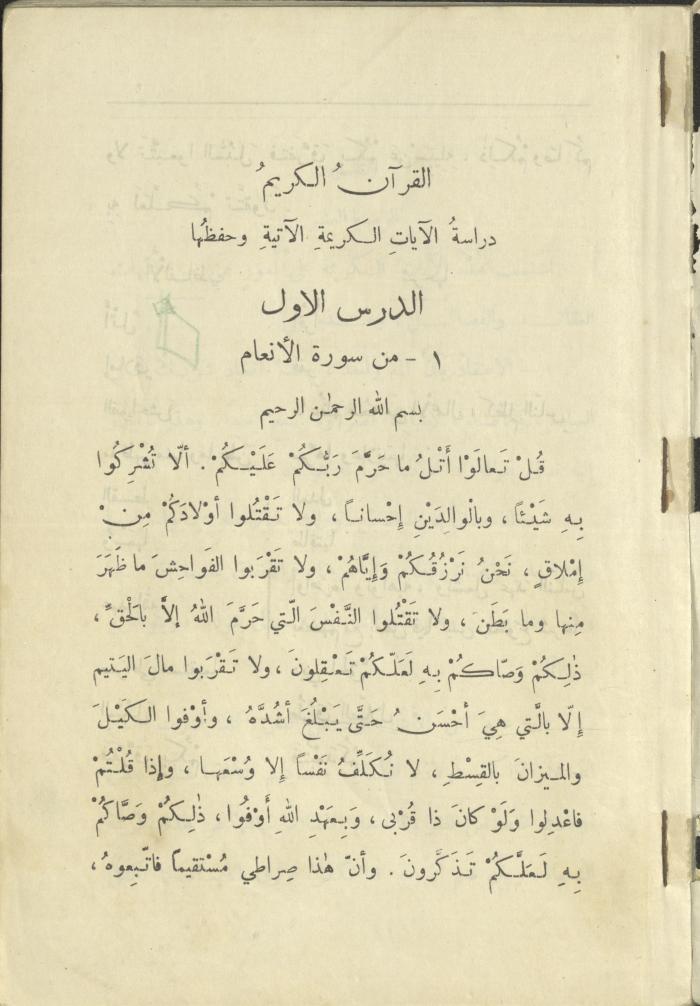 القرآنُ الكريمُ
دراسةُ الآياتِ الكريمةِ الآتيةِ وحفظُها
الدرس الاول
١ - من سورة الأنعام
بسم الله الرحمٰن الرحيم
قُلْ تَعالَوْا أَتْلُ ما حَرَّمَ رَبُّكُمْ عَلَيْكُمْ. ألّا تُشْرِكُوا
بِهِ شَيْئاً، وبالْوالِدَيْنِ إِحْساناً، ولا تَقْتُلوا أوْلادَكُمْ مِنْ
إِمْلاقٍ، نَحْنُ نَرْزُقُكُمْ وَإِيَّاهُمْ، ولا تَقْرَبوا الفَواحِشَ ما ظَهَرَ
مِنها وما بَطَنَ، ولا تَقْتُلوا النَّفْسَ الّتي حَرَّمَ اللهُ إلاَّ بالْحَقِّ،
ذٰلِكُمْ وَصّاكُمْ بِهِ لَعَلّكُمْ تَعْقِلونَ، ولا تَقْرَبوا مالَ اليَتيم
إِلّا بالَّتي هِيَ أحْسَنُ حَتَّى يَبْلُغَ أشُدَّهُ، وأوْفوا الكَيْلَ
والميزانَ بالقِسْطِ، لا نُكَلِّفُ نَفْساً إلا وُسْعَها، وإذا قُلْتُمْ
فاعْدِلوا وَلَوْ كانَ ذا قُرْبى، وَبِعَهْدِ اللهِ أَوْفُوا، ذٰلِكُمْ وَصَّاكُمْ
بِهِ لَعَلَّكُمْ تَذَكَّرونَ. وأنّ هٰذا صِراطي مُسْتَقيمًا فاتَّبِعوهُ،